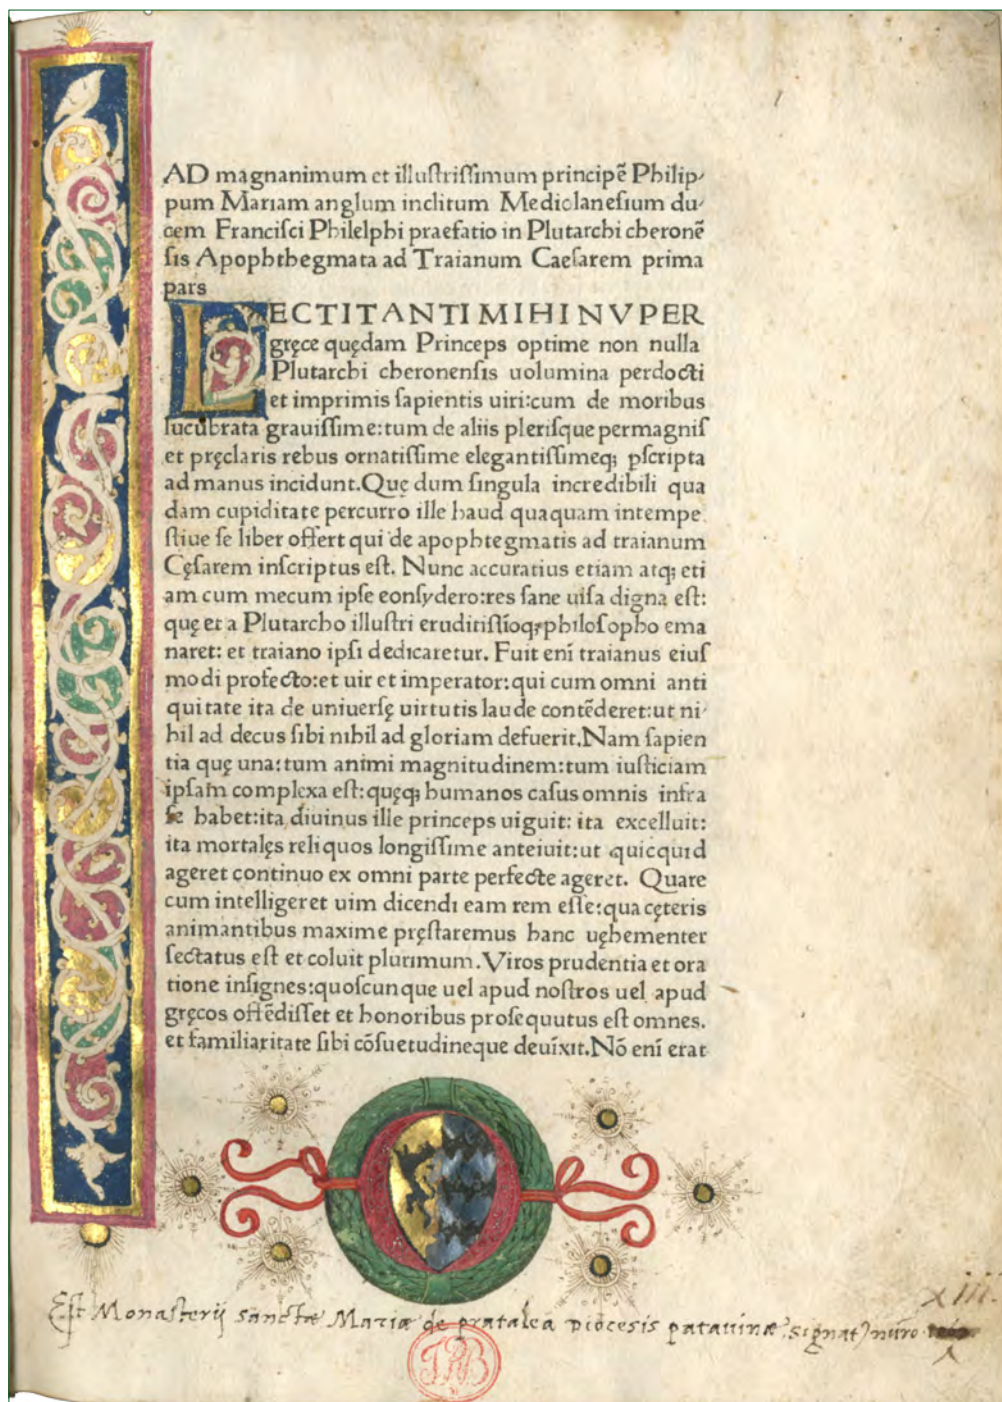 AD magnanimum et illuſtriſſimum principē Philip-
pum Mariam anglum inclitum Mediolaneſium du-
cem Franciſci Philelphi praefatio in Plutarchi cheronē
ſis Apophthegmata ad Traianum Caeſarem prima
pars
LECTITANTI MIHI NVPER
gręce quędam Princeps optime non nulla
Plutarchi cheronenſis uolumina perdocti
et imprimis ſapientis uiri:cum de moribus
lucubrata grauiſſime:tum de aliis pleriſque permagniſ
et pręclaris rebus ornatiſſime elegantiſſimeq; pſcripta
ad manus incidunt.Quę dum ſingula incredibili qua
dam cupiditate percurro ille haud quaquam intempe
ſtiue ſe liber offert qui de apophtegmatis ad traianum
Cęſarem inſcriptus eſt. Nunc accuratius etiam atq; eti
am cum mecum ipſe eonſydero:res ſane uiſa digna eſt:
quę et a Plutarcho illuſtri eruditiſſīoq; philoſopho ema
naret: et traiano ipſi dedicaretur. Fuit enī traianus eiuſ
modi profecto:et uir et imperator:qui cum omni anti
quitate ita de uniuerſę uirtutis laude contēderet:ut ni-
hil ad decus ſibi nihil ad gloriam defuerit.Nam ſapien
tia quę una:tum animi magnitudinem:tum iuſticiam
ipſam complexa eſt:quęq; humanos caſus omnis infra
ſe habet:ita diuinus ille princeps uiguit: ita excelluit:
ita mortalęs reliquos longiſſime anteiuit:ut quicquid
ageret continuo ex omni parte perfecte ageret. Quare
cum intelligeret uim dicendi eam rem eſſe:qua cęteris
animantibus maxime pręſtaremus hanc uęhementer
ſectatus eſt et coluit plurimum.Viros prudentia et ora
tione inſignes:quoſcunque uel apud noſtros uel apud
gręcos offēdiſſet et honoribus proſequutus eſt omnes.
et familiaritate ſibi cōſuetudineque deuīxit.Nō enī erat
XIII.
Eſt Monaſterij sanctæ Mariæ de pratalea diocesis patauinæ, signat) nūro
JRB